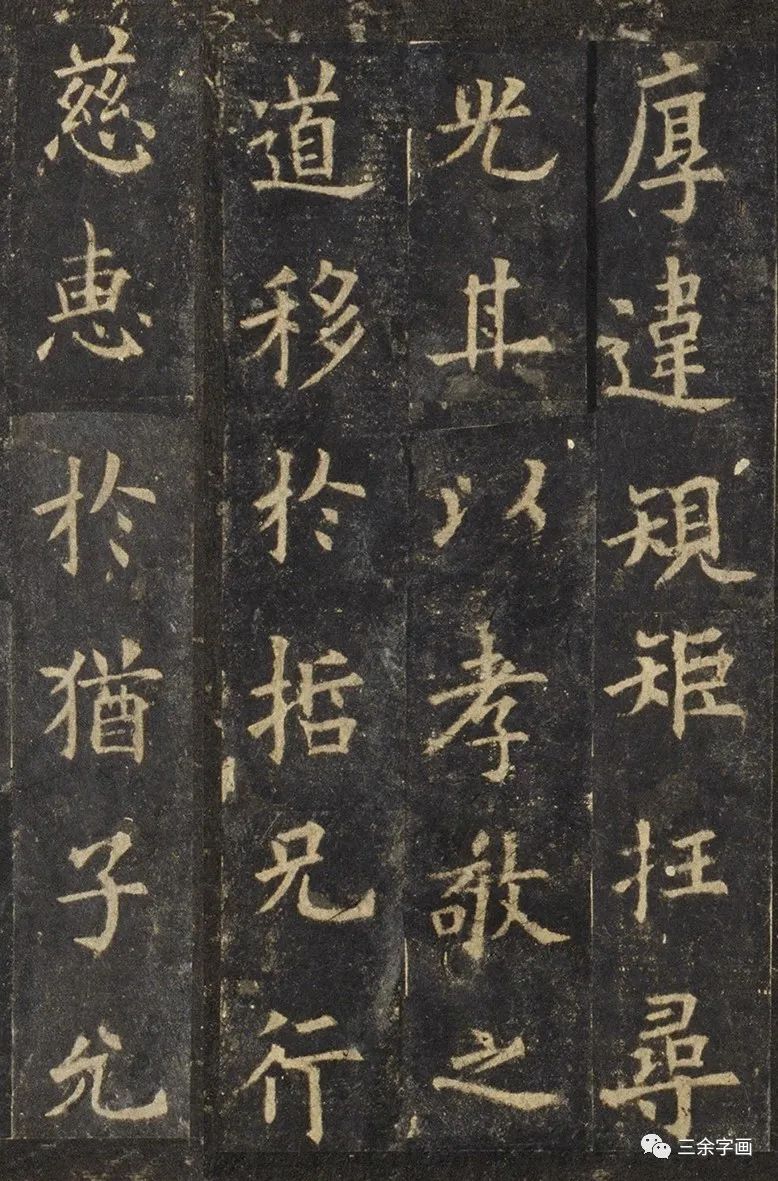 厚違規矩抂尋
光其以孝敬之
道移於哲兄行
慈惠於猶子允
三余字画